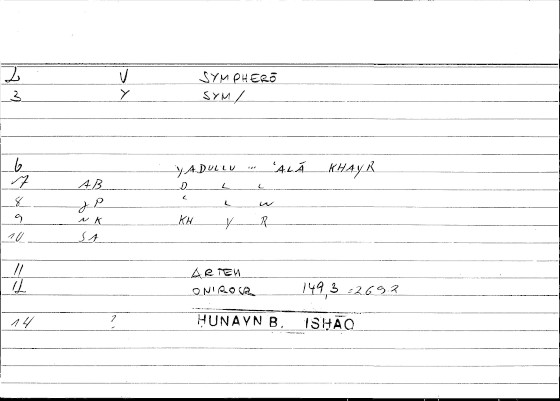 2 V SYMPHERŌ
3 Y SYM/
6 YADULLU ... ʿALĀ KHAYR
7 AB D L L
8 gP ʿ L W
9 NK KH Y R
10 SA
11 ARTEM
12 ONIROCR 149,3 =269?
14 ? HUNAYN B. ISHĀQ